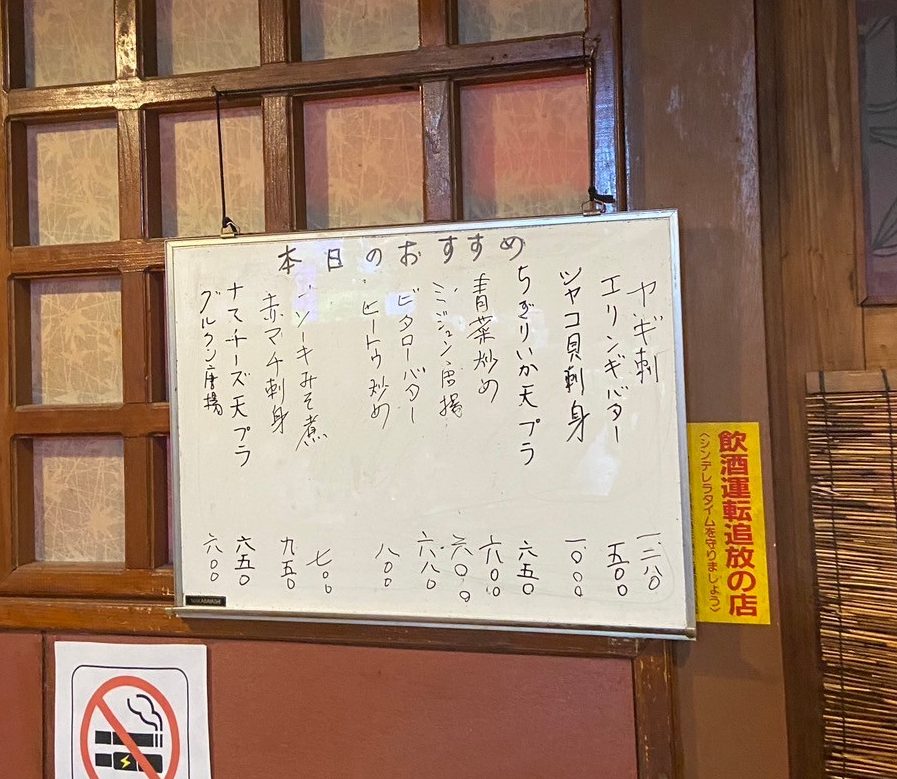 本日のおすすめ
ヤギ刺 一、二八〇
エリンギバター 五〇〇
シャコ貝刺身 一、〇〇〇
ちぎりいか天プラ 六五〇
青菜炒め 六〇〇
ミジュン唐揚 六〇〇
ビタローバター 六八〇
ヒートゥ炒め 八〇〇
ソーキみそ煮 七〇〇
赤マチ刺身 九五〇
ナマチーズ天プラ 六五〇
グルクン唐揚 六〇〇
飲酒運転追放の店
〈シンデレラタイムを守りましょう〉
NAKABAYASHI